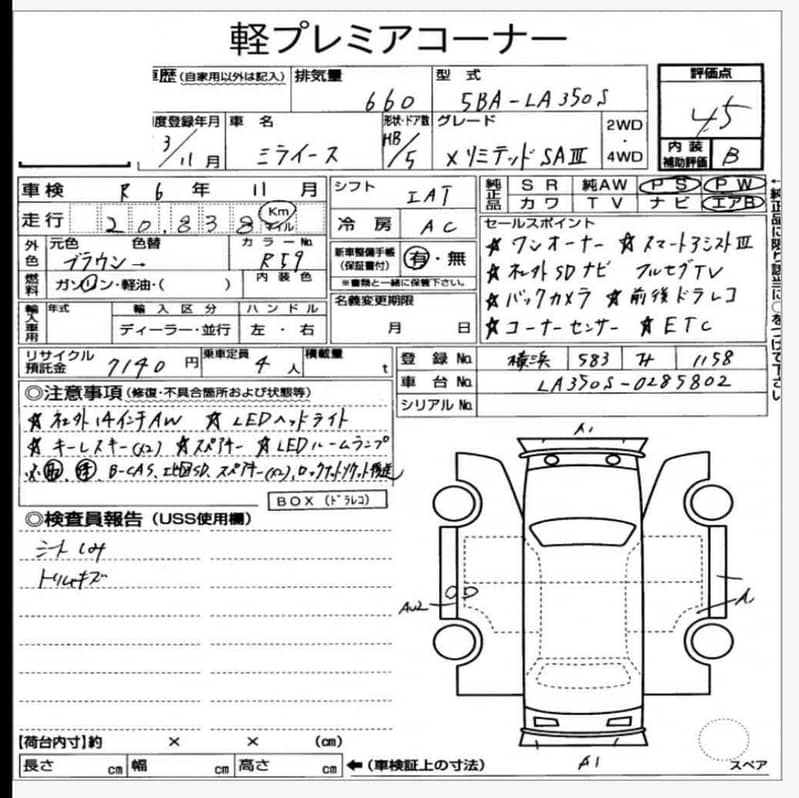 軽プレミアコーナー
車歴(自家用以外は記入) 排気量 660 型式 5BA-LA350S 評価点 4.5
度登録年月 3/11月 車名 ミライース 形状・ドア数 HB/5 グレード X リミテッド SAⅢ 2WD・4WD 内装補助評価 B
車検 R6年 11月 シフト IAT 純正品 SR 純AW PS PW
走行 20,838 Km マイル 冷房 AC カワ TV ナビ エアB
←純正品に限り該当に○をつけて下さい
外色 元色 ブラウン→ 色替 カラーNo. R59 新車整備手帳(保証書付) 有・無 セールスポイント
※書類と一緒に保管下さい。
燃料 ガソリン・軽油・( ) 内装色
☆ワンオーナー ☆スマートアシストⅢ
☆社外SDナビ フルセグTV
☆バックカメラ ☆前後ドラレコ
☆コーナーセンサー ☆ETC
輸入車用 年式 輸入区分 ディーラー・並行 ハンドル 左・右 名義変更期限 月 日
リサイクル預託金 7140円 乗車定員 4人 積載量 t 登録No. 横浜 583 1158
車台No. LA350S-0285802
シリアルNo.
◎注意事項(修復・不具合箇所および状態等)
☆社外14インチAW ☆LEDヘッドライト
☆キーレスキー(x2) ☆スペアキー ☆LEDルームランプ
B-CAS、地図SD、スペアキー(x2)、
BOX(ドラレコ)
◎検査員報告(USS使用欄)
シートしみ
トリムキズ
A1
AU2
A
A1
【荷台内寸】約 × × (cm)
長さ cm 幅 cm 高さ cm ←(車検証上の寸法)
スペア